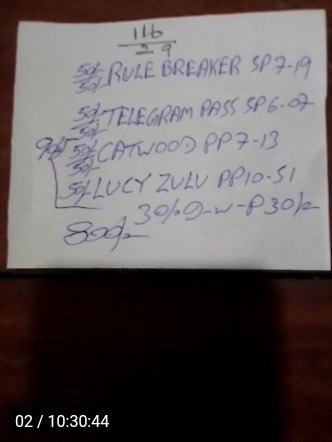 116
29
50/- RULE BREAKER SP 7-19
50/-
50/- TELEGRAM PASS SP 6-07
50/-
50/- CATWOOD PP 7-13
50/-
50/- LUCY ZULU PP 10-51
30/- P 30/-
800/-
02 / 10:30:44